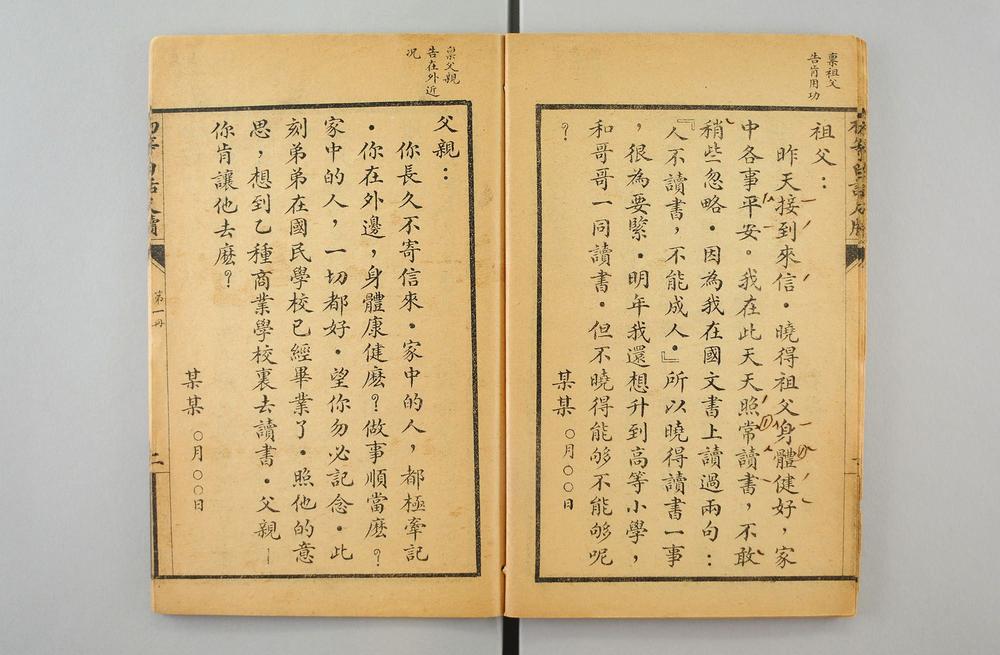 稟祖父
告肯用功
祖父：
昨天接到來信．曉得祖父身體健好，家
中各事平安。我在此天天照常讀書，不敢
稍些忽略．因為我在國文書上讀過兩句：
『人不讀書，不能成人．』所以曉得讀書一事
，很為要緊．明年我還想升到高等小學，
和哥哥一同讀書．但不曉得能够不能够呢
？
某某 〇月〇〇日
稟父親
告在外近
况
父親：
你長久不寄信來．家中的人，都極牽記
．你在外邊，身體康健麽？做事順當麽？
家中的人，一切都好．望你勿必記念．此
刻弟弟在國民學校已經畢業了．照他的意
思，想到乙種商業學校裏去讀書．父親
你肯讓他去麽？
某某 〇月〇〇日
第一冊
二